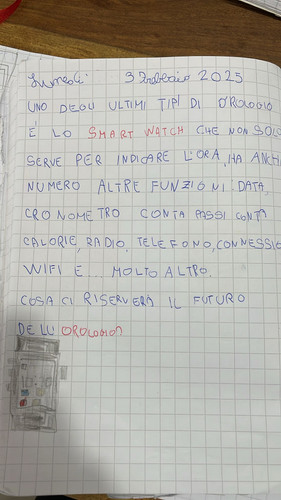 Lunedì 3 Febbraio 2025
UNO DEGLI ULTIMI TIPI DI OROLOGIO
È LO SMART WATCH CHE NON SOLO
SERVE PER INDICARE L'ORA, HA ANCHE
NUMERO ALTRE FUNZIONI: DATA,
CRONOMETRO CONTA PASSI CONTA
CALORIE, RADIO, TELEFONO, CONNESSIO
WIFI E... MOLTO ALTRO.
COSA CI RISERVERÀ IL FUTURO
DELLI OROLOGI?